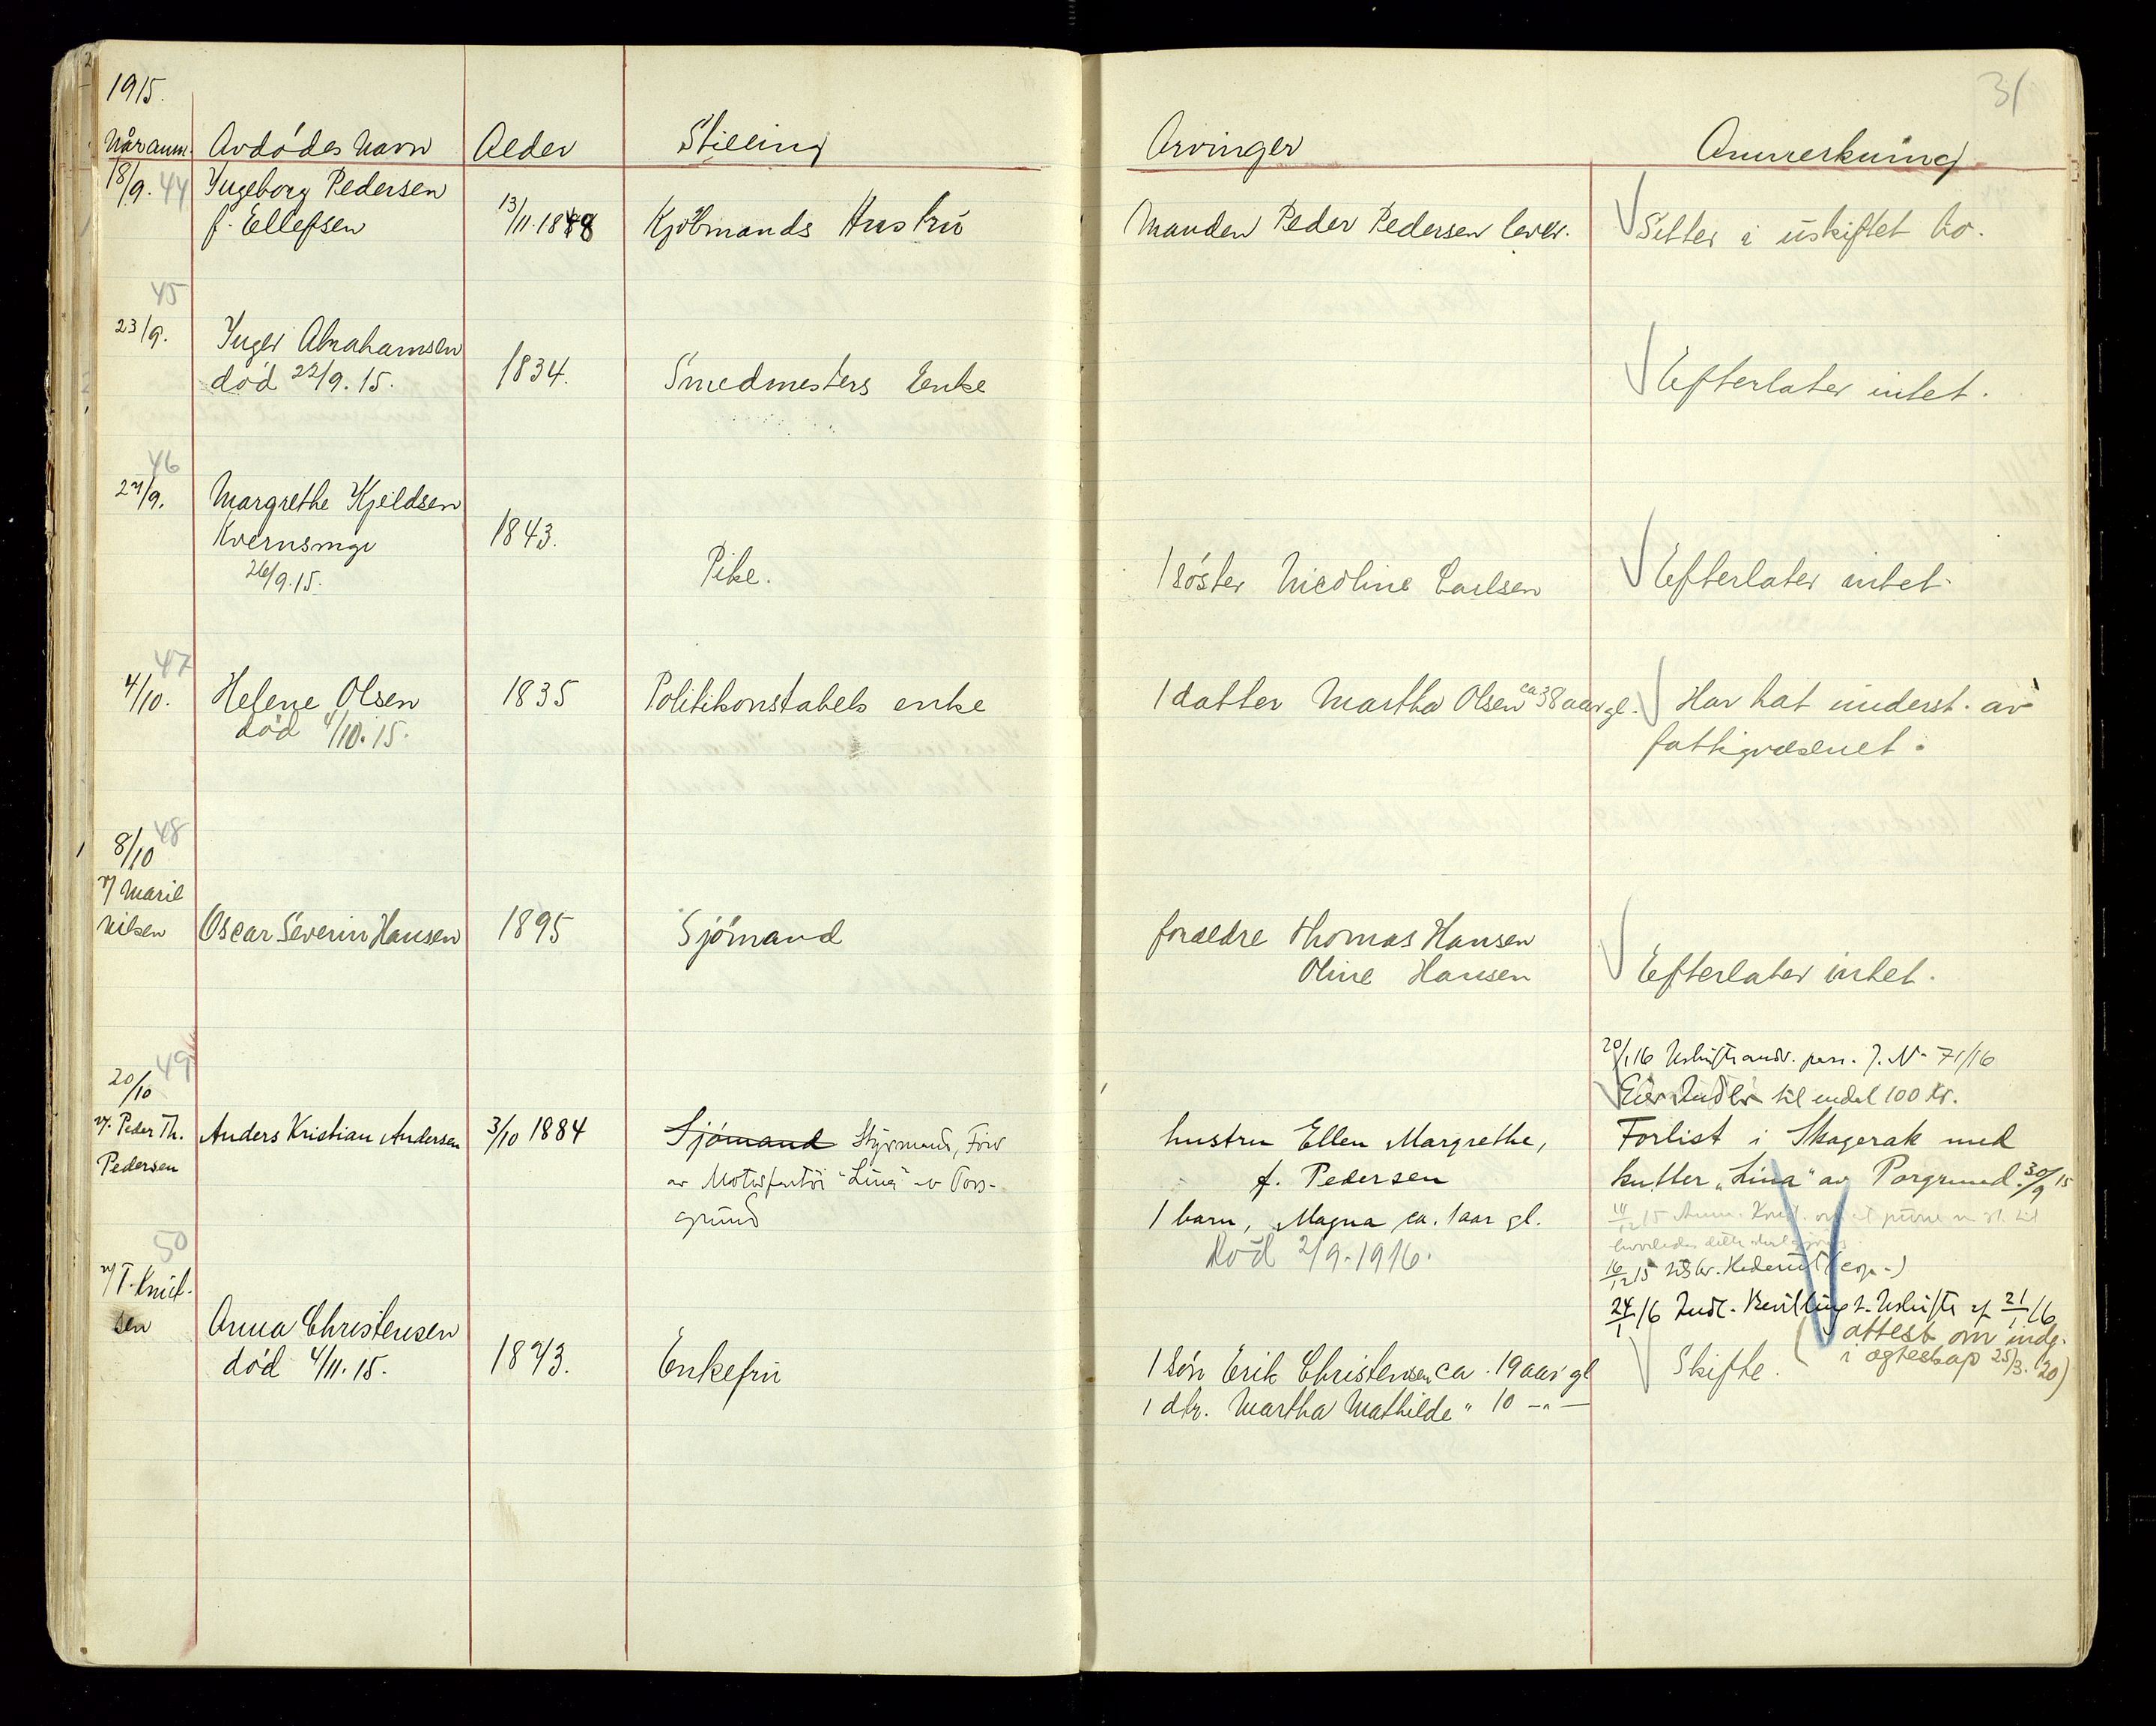 1915.
31
Når anm. Avdødes Navn Alder Stilling Arvinger Anmerkning
18/9. 44 Ingeborg Pedersen
f. Ellefsen 13/11.1848 Kjøbmands Hustru Manden Peder Pedersen lever. Sitter i uskiftet bo.
45
23/9. Inger Abrahamsen
død 22/9. 15. 1834. Smedmesters Enke Efterlater intet.
46
27/9. Margrethe Kjeldsen
1843.
26/9.15. Pike. 1 søster Nicoline Carlsen Efterlater intet.
47
4/10. Helene Olsen 1835 Politikonstabels enke 1 datter Martha Olsen ca 38 aar gl. Har hat underst. av
død 4/10. 15. fattigvæsenet.
48
8/10
v/ Maril
Nilsen Oscar Severin Hansen 1895 Sjømand foraeldre Thomas Hansen
Oline Hansen Efterlater intet.
49
20/1 16 J. N. 71/16
20/10 til endel 100 Kr.
v/. Peder Th. Anders Kristian Andersen 3/10 1884 Sjømand Styrmand, hustru Ellen Margrethe, Forlist i Skagerak med
Pedersen "Lina" av Pors- f. Pedersen kutter "Lina" av Porgrund. 30/9 15
grund 1 barn, Magna ca. 1 aar gl.
Død 2/9-1916.
50
16/12 15
v/ T. Knut-
sen 24/1 16 21/1 16
Anna Christensen attest om indg.
død 4/11. 15. 1873. Enkefru 1 søn Erik Christensen ca. 19 aar gl Skifte. i ægteskap 25/3. 20)
1 dtr. Martha Mathilde " 10 -"-